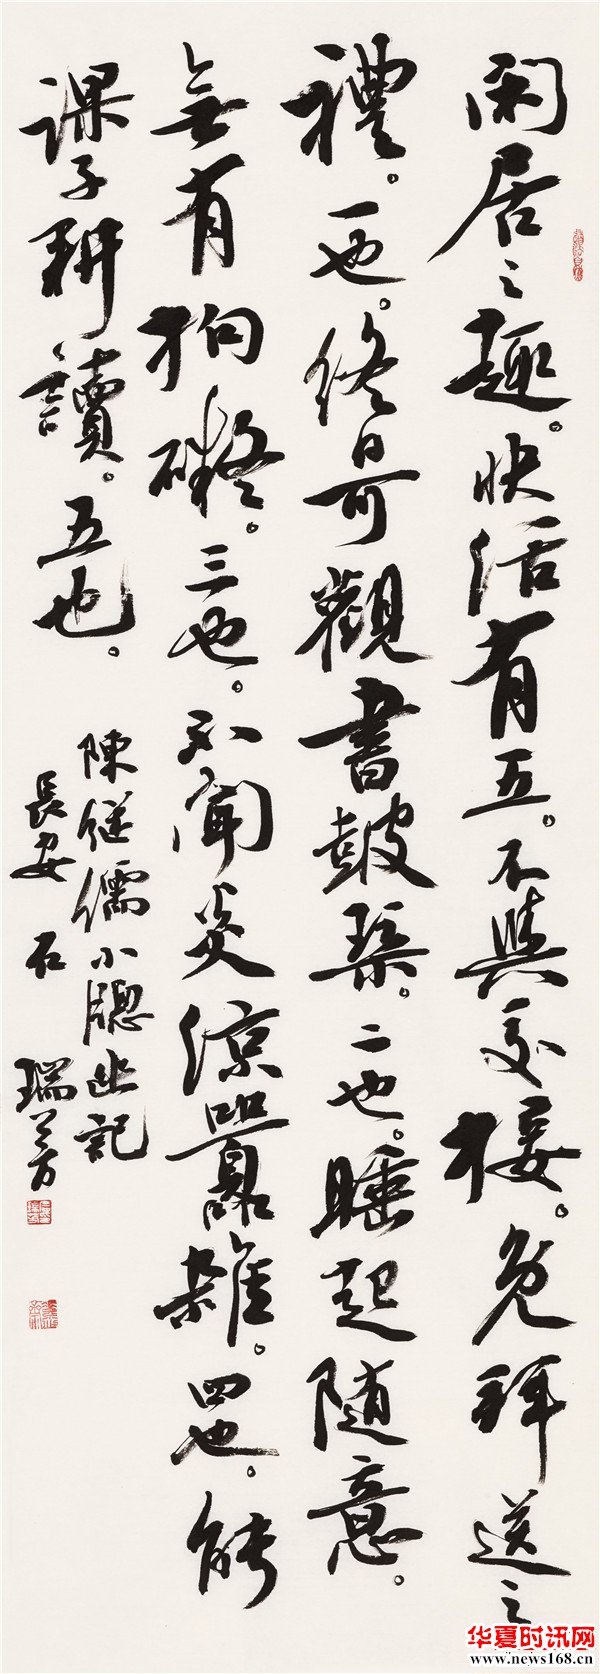 閑居之趣。快活有五。不與交接。免拜送之
禮。一也。終日可觀書皷琴。二也。睡起随意。
無有拘礙。三也。不聞炎涼囂雜。四也。能
課子耕讀。五也。
陳継儒小牕幽記
長安 石瑞芳
华夏时讯网
www.news168.cn